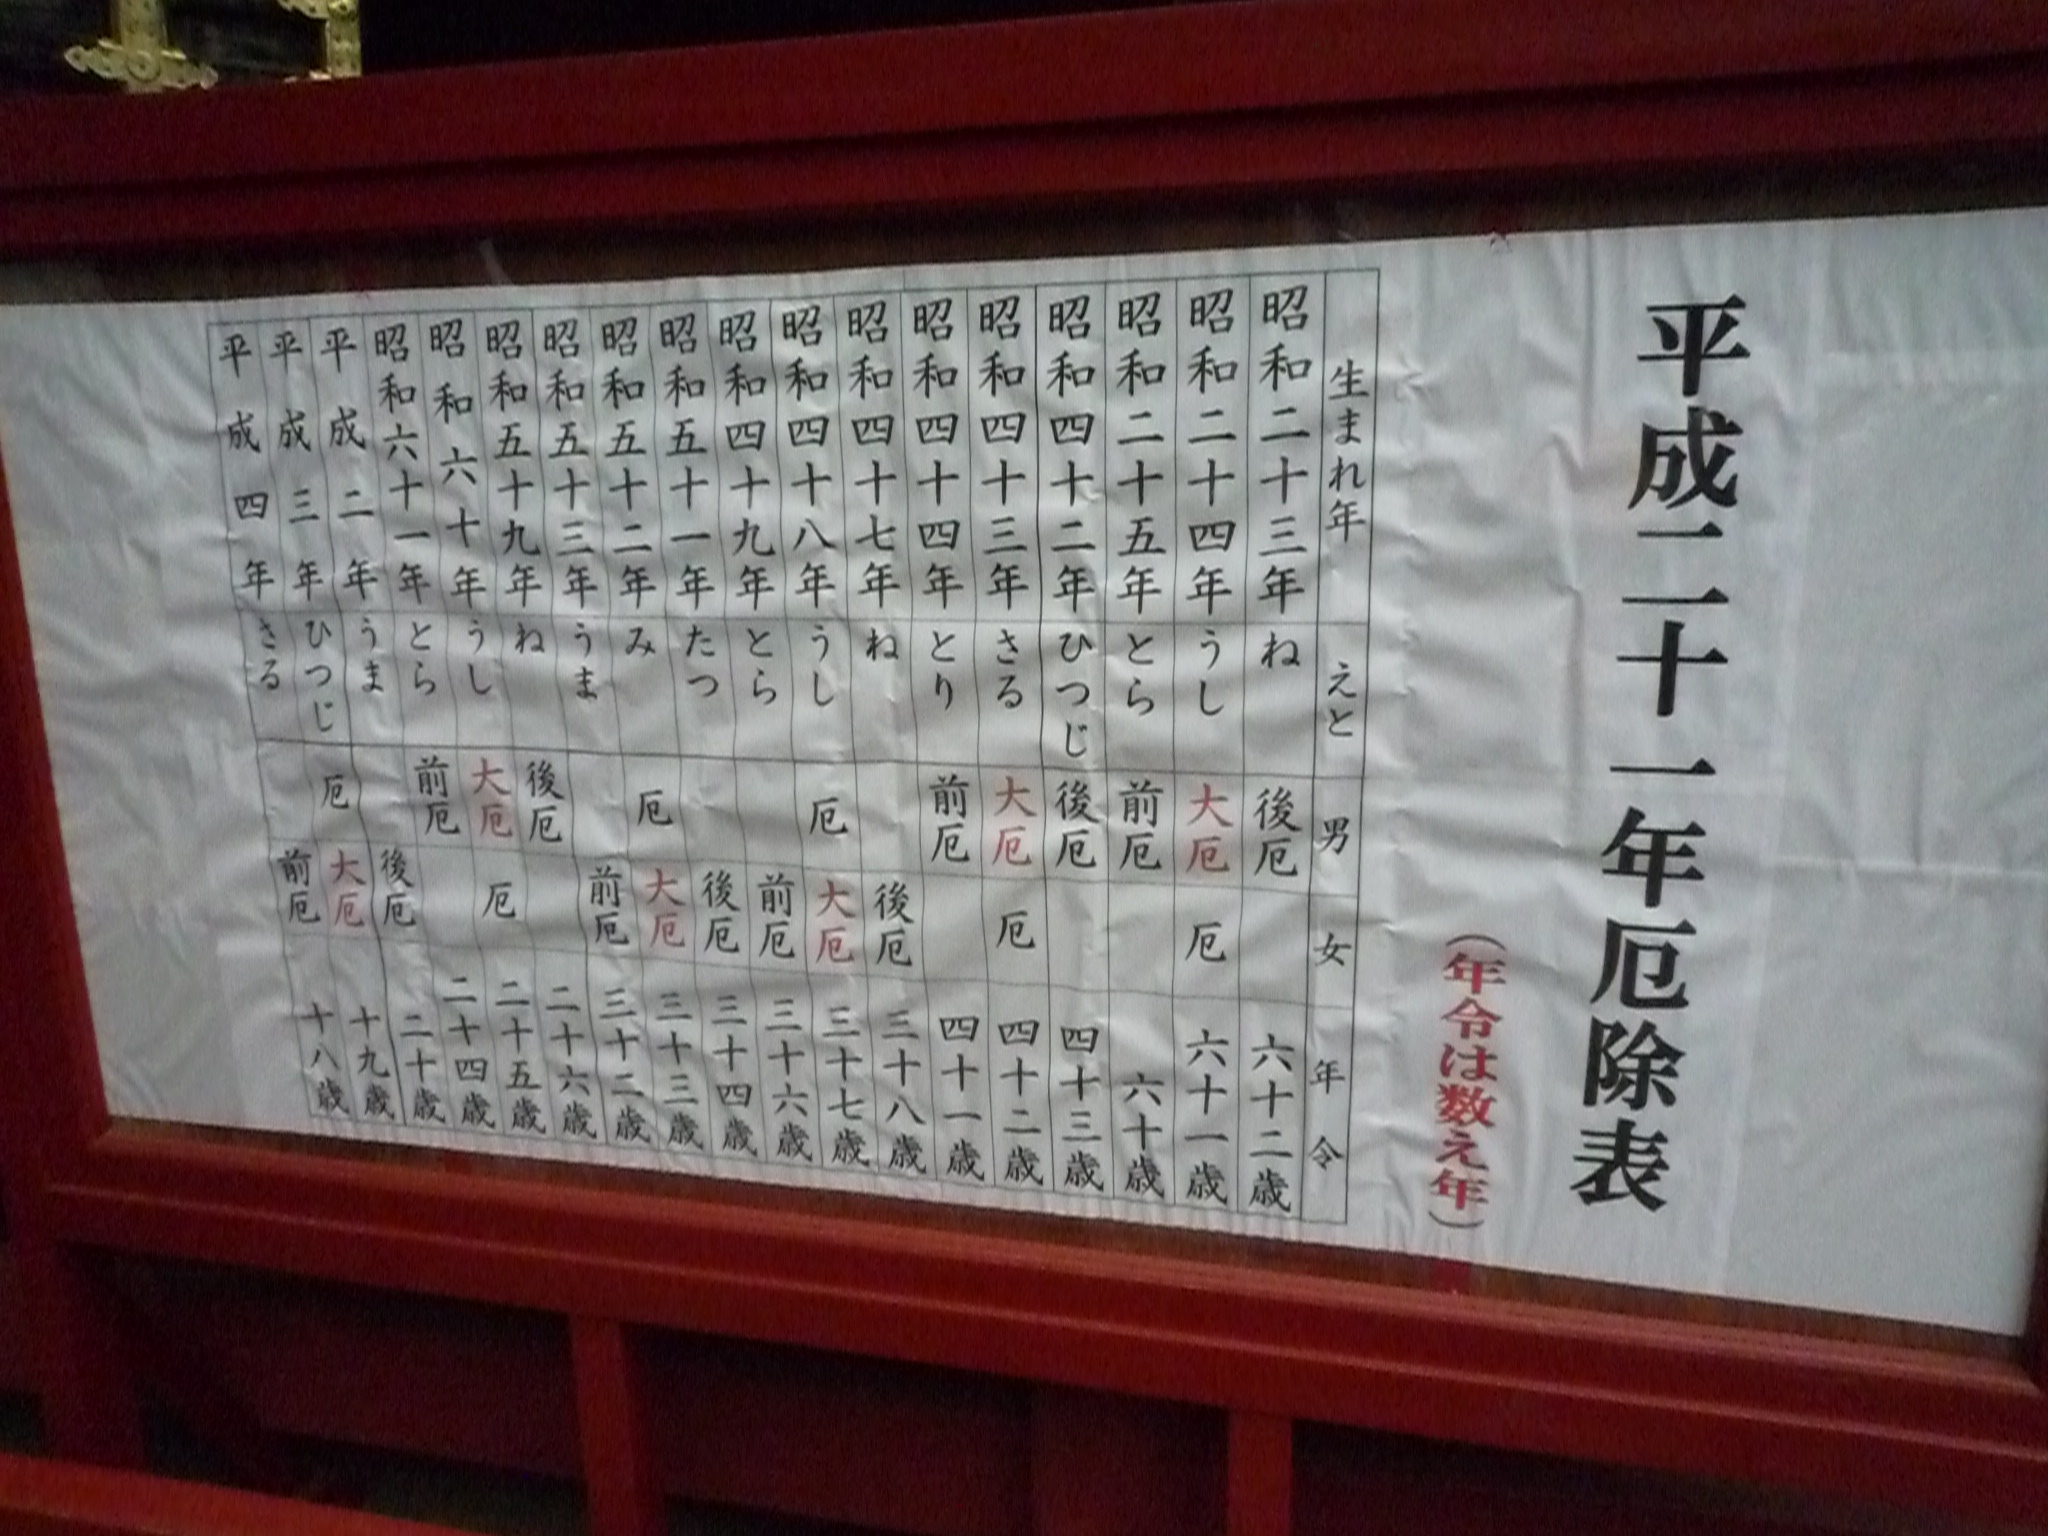 平成二十一年厄除表
(年令は数え年)
生まれ年 えと 男 女 年令
昭和二十三年 ね 後厄 六十二歳
昭和二十四年 うし 大厄 厄 六十一歳
昭和二十五年 とら 前厄 六十歳
昭和四十二年 ひつじ 後厄 四十三歳
昭和四十三年 さる 大厄 厄 四十二歳
昭和四十四年 とり 前厄 四十一歳
昭和四十七年 ね 後厄 三十八歳
昭和四十八年 うし 厄 大厄 三十七歳
昭和四十九年 とら 前厄 三十六歳
昭和五十一年 たつ 後厄 三十四歳
昭和五十二年 み 厄 大厄 三十三歳
昭和五十三年 うま 前厄 三十二歳
昭和五十九年 ね 後厄 二十六歳
昭和六十年 うし 大厄 厄 二十五歳
昭和六十一年 とら 前厄 二十四歳
平成二年 うま 後厄 二十歳
平成三年 ひつじ 厄 大厄 十九歳
平成四年 さる 前厄 十八歳